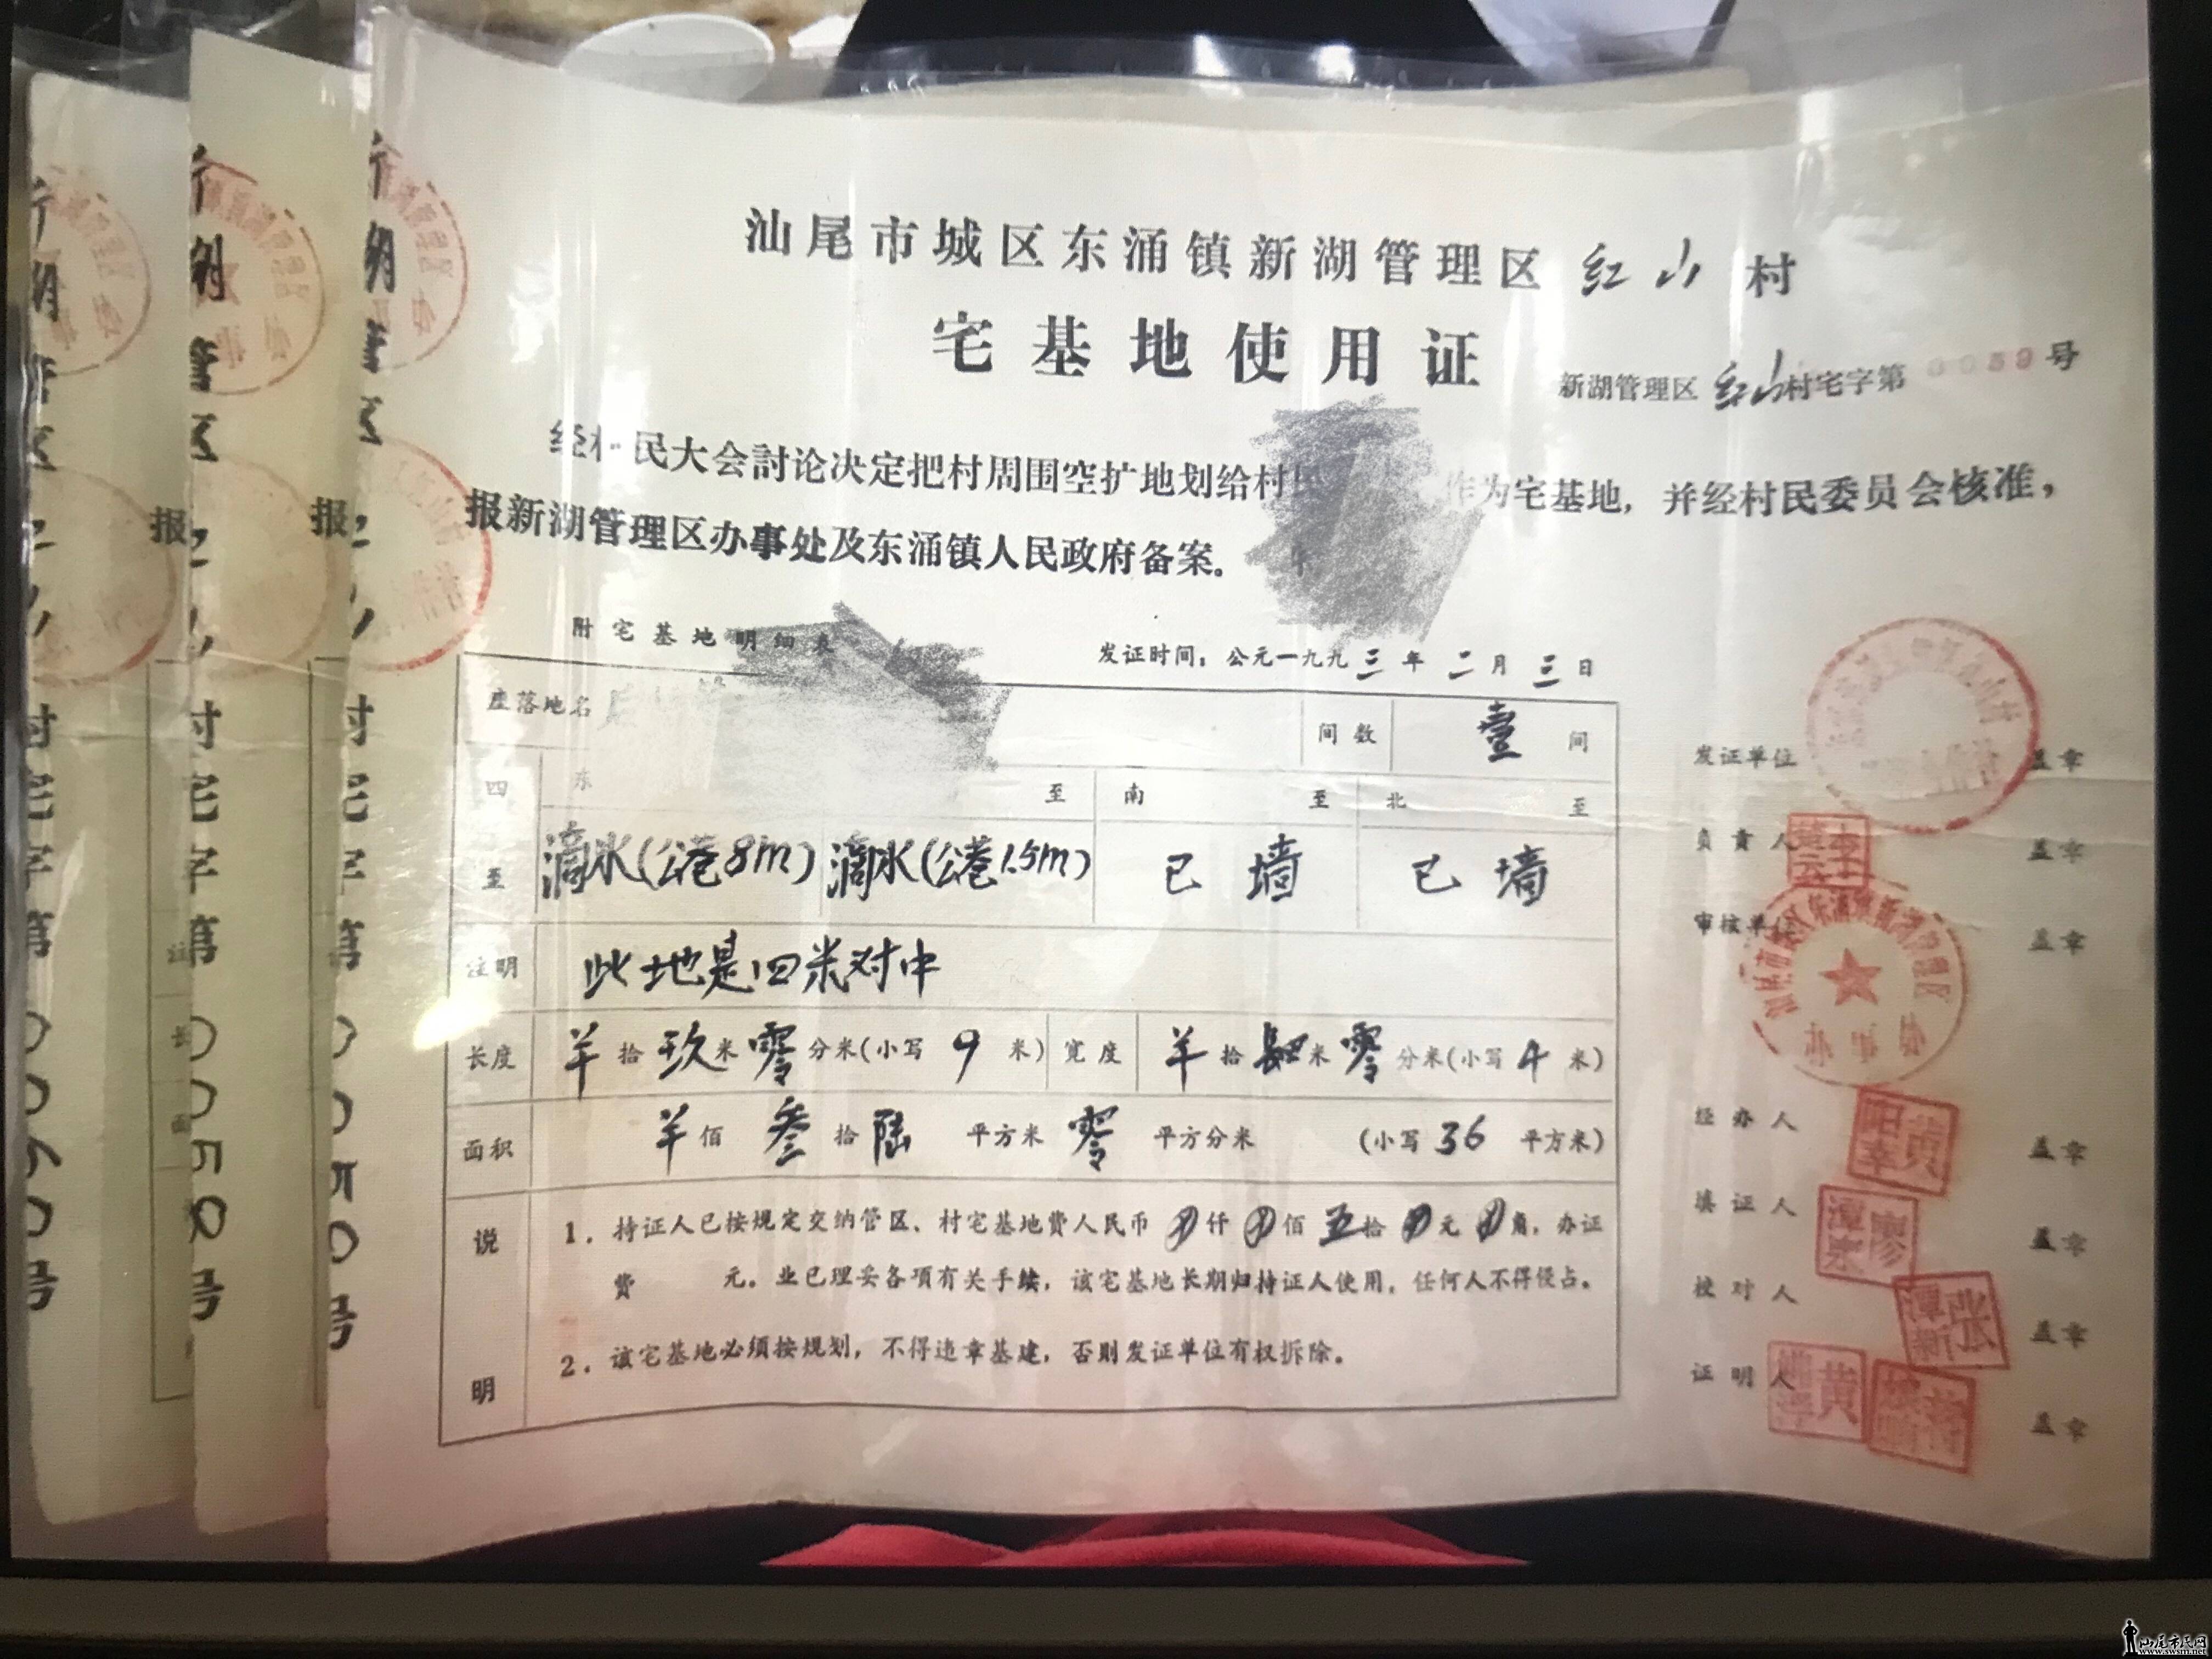 汕尾市城区东涌镇新湖管理区红山村
宅基地使用证
新湖管理区红山村宅字第0059号
经村民大会討论决定把村周围空扩地划给村 作为宅基地，并经村民委员会核准，
报新湖管理区办事处及东涌镇人民政府备案。
附宅基地明细表
发证时间：公元一九九三年二月三日
座落地名
间数 壹 间
四至 东 至 南 至 北 至
滴水(公巷8m) 滴水(公巷1.5m) 已墙 已墙
注明 此地是四米对中
长度 羊拾玖米零分米(小写9米) 宽度 羊拾肆米零分米(小写4米)
面积 羊佰叁拾陆平方米零平方分米 (小写36平方米)
说明
1. 持证人已按规定交纳管区、村宅基地费人民币 仟 佰五拾 元 角，办证
费 元。业已理妥各项有关手续，该宅基地长期归持证人使用，任何人不得侵占。
2. 该宅基地必须按规划，不得违章基建，否则发证单位有权拆除。
发证单位 盖章
负责人 盖章
审核单位 盖章
经办人 盖章
填证人 盖章
校对人 盖章
证明人 盖章
报
报
村宅字第0060号
村宅字第0058号
村宅字第
汕尾市民网
www.swsm.net